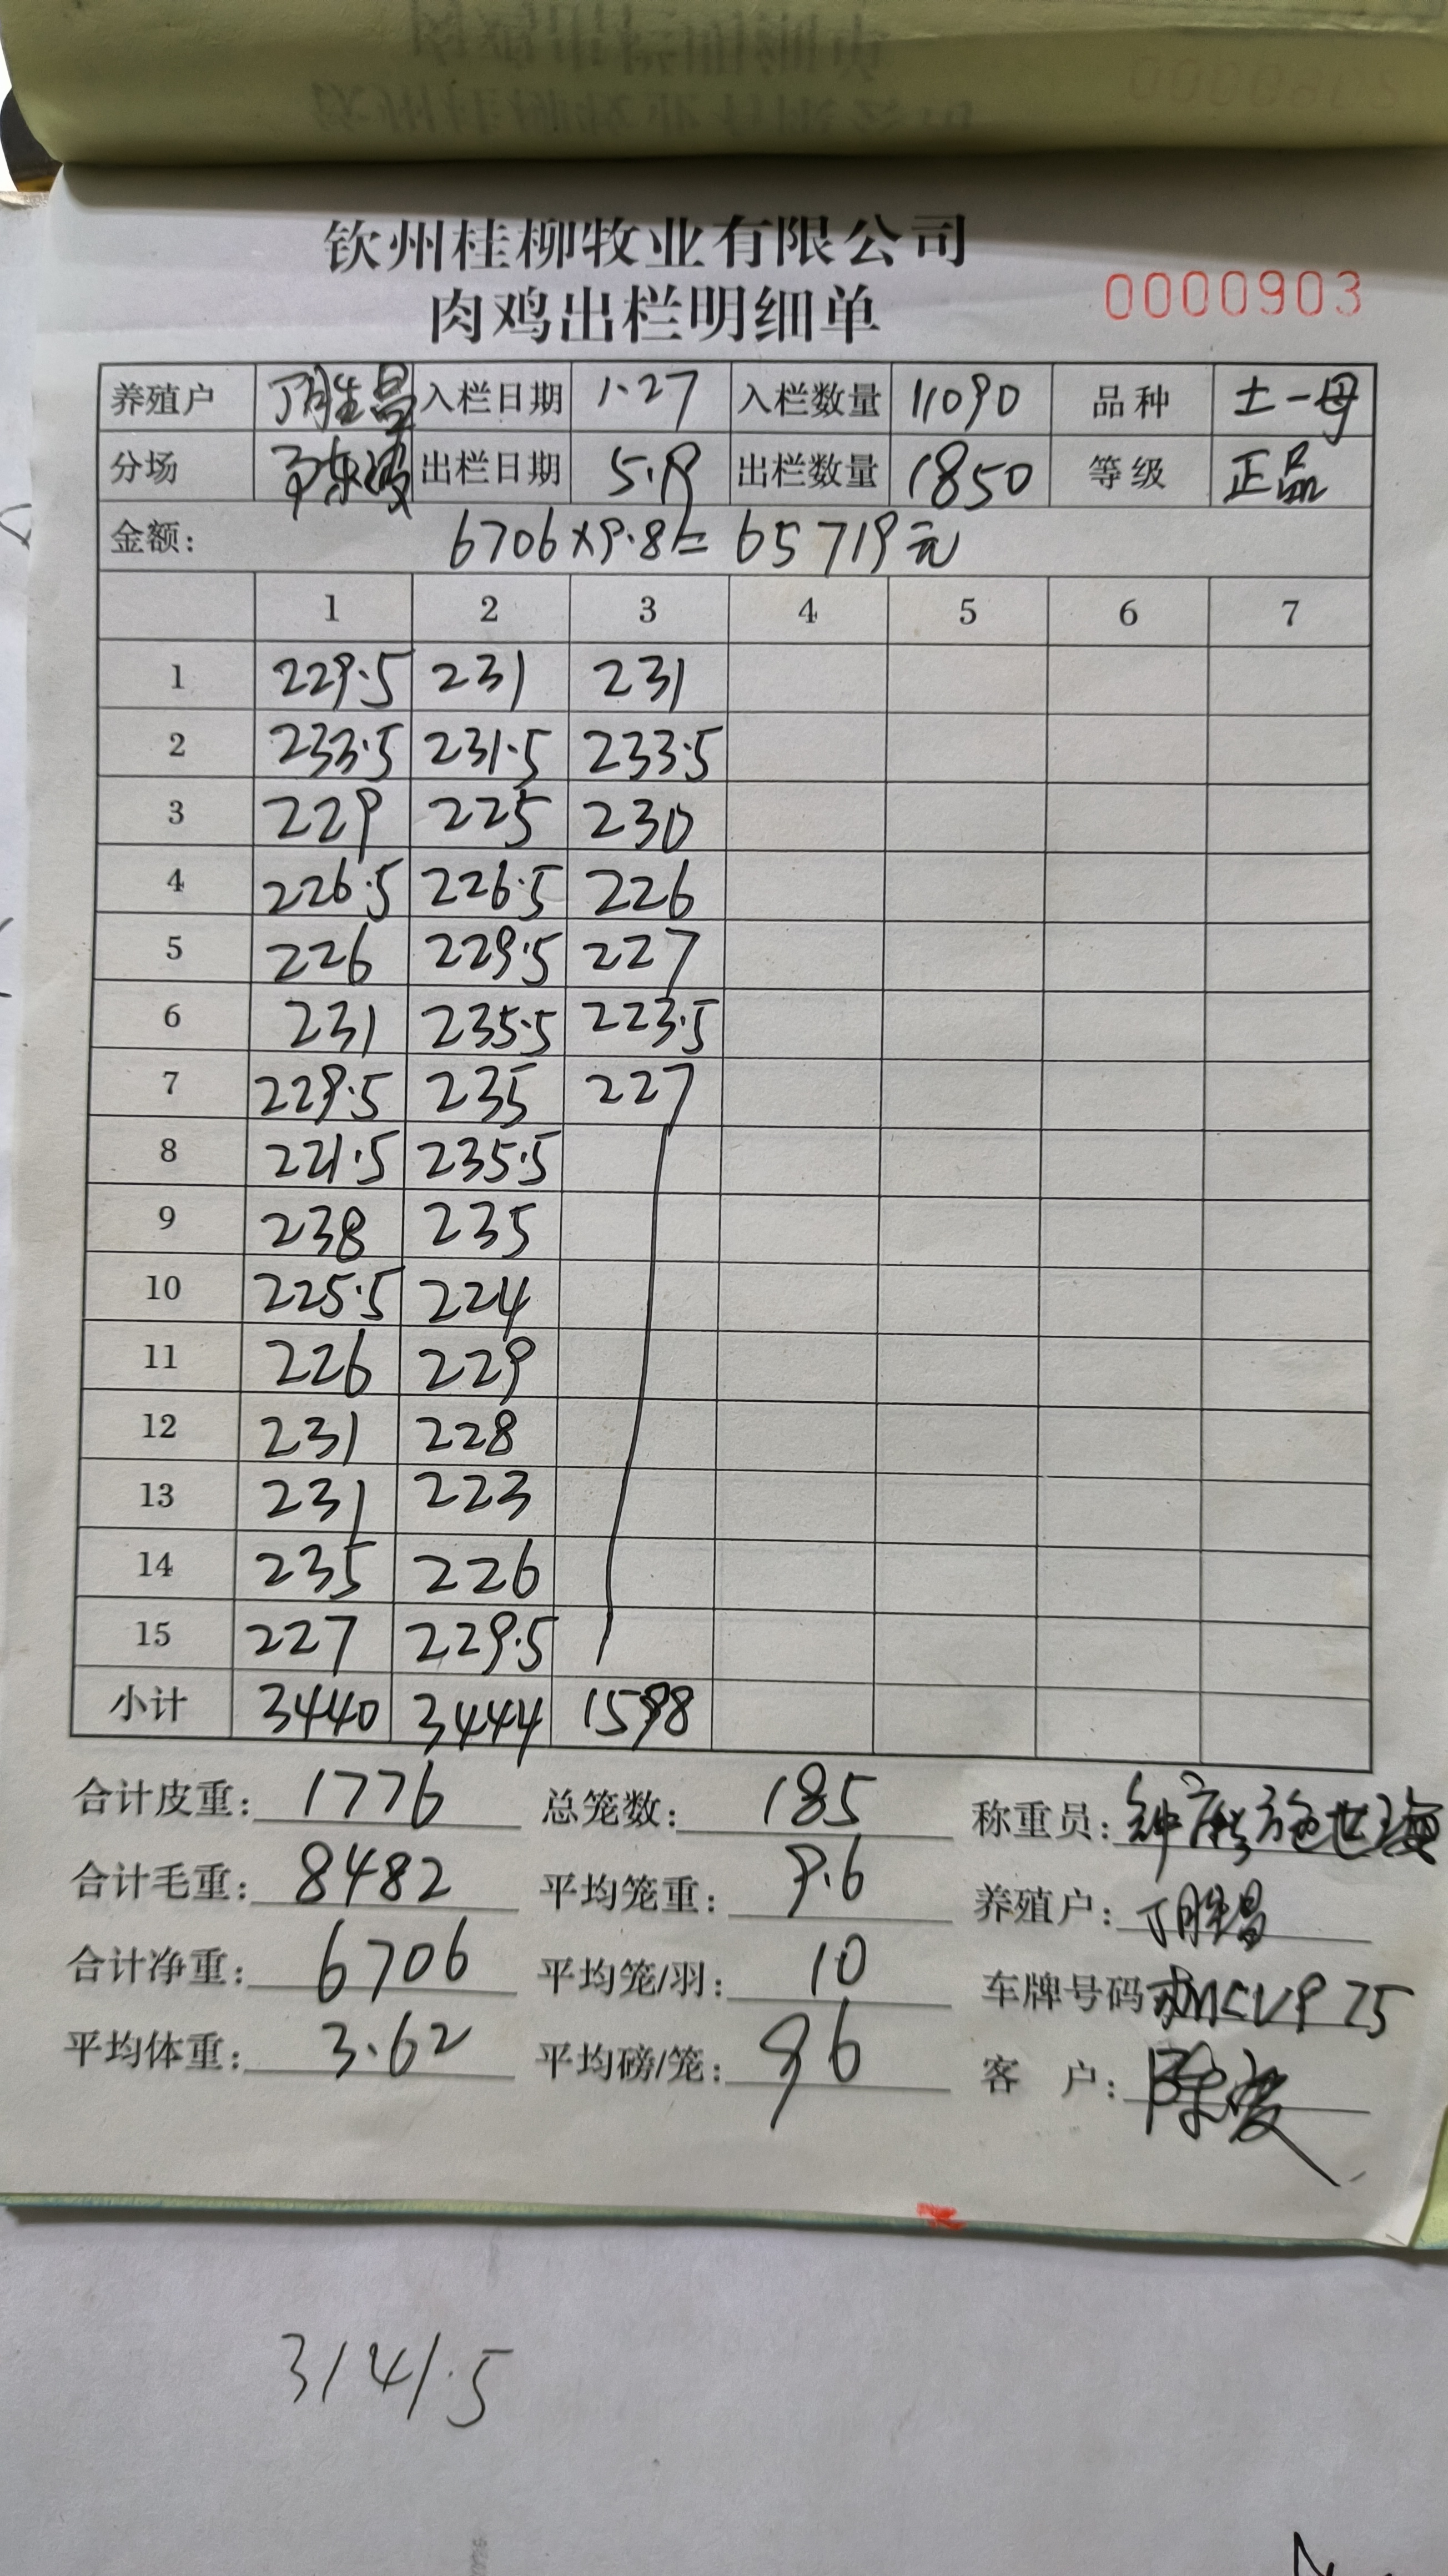 钦州桂柳牧业有限公司
肉鸡出栏明细单
0000903
养殖户 丁胜昌 入栏日期 1.27 入栏数量 11090 品种 土一母
分场 出栏日期 5.19 出栏数量 1850 等级 正品
金额: 6706×9.8= 65719元
1 2 3 4 5 6 7
1 229.5 231 231
2 233.5 231.5 233.5
3 229 225 230
4 226.5 226.5 226
5 226 229.5 227
6 231 235.5 223.5
7 229.5 235 227
8 221.5 235.5
9 238 235
10 225.5 224
11 226 229
12 231 228
13 231 223
14 235 226
15 227 229.5
小计 3440 3444 1598
合计皮重: 1776 总笼数: 185 称重员:
合计毛重: 8482 平均笼重: 9.6 养殖户: 丁胜昌
合计净重: 6706 平均笼/羽: 10 车牌号码
平均体重: 3.62 平均磅/笼: 96 客 户:
3141.5